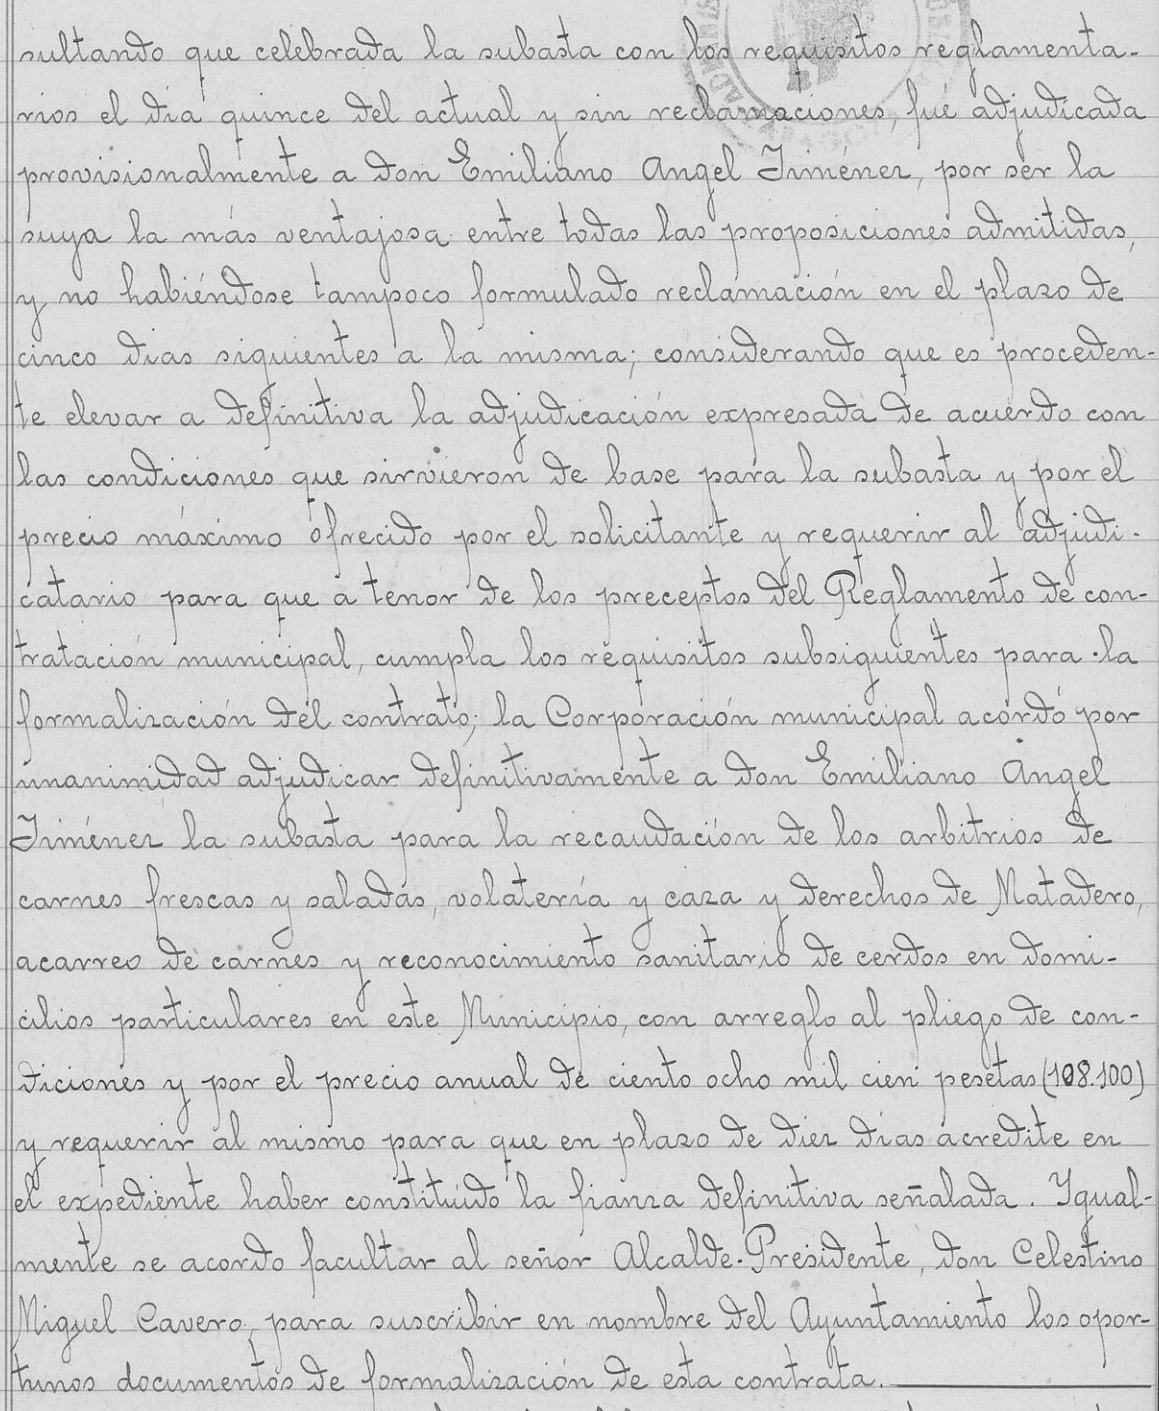 sultando que celebrada la subasta con los requisitos reglamenta-
rios el día quince del actual y sin reclamaciones, fué adjudicada
provisionalmente a don Emiliano Angel Jiménez, por ser la
suya la más ventajosa entre todas las proposiciones admitidas,
y no habiéndose tampoco formulado reclamación en el plazo de
cinco dias siguientes a la misma; considerando que es proceden-
te elevar a definitiva la adjudicación expresada de acuerdo con
las condiciones que sirvieron de base para la subasta y por el
precio máximo ofrecido por el solicitante y requerir al adjudi-
catario para que a tenor de los preceptos del Reglamento de con-
tratación municipal, cumpla los requisitos subsiguientes para la
formalización del contrato; la Corporación municipal acordó por
unanimidad adjudicar definitivamente a don Emiliano Angel
Jiménez la subasta para la recaudación de los arbitrios de
carnes frescas y saladas, volatería y caza y derechos de Matadero,
acarreo de carnes y reconocimiento sanitario de cerdos en domi-
cilios particulares en este Municipio, con arreglo al pliego de con-
diciones y por el precio anual de ciento ocho mil cien pesetas (108.100)
y requerir al mismo para que en plazo de diez días acredite en
el expediente haber constituído la fianza definitiva señalada. Ygual-
mente se acordo facultar al señor Alcalde-Presidente, don Celestino
Miguel Cavero, para suscribir en nombre del Ayuntamiento los opor-
tunos documentos de formalización de esta contrata.